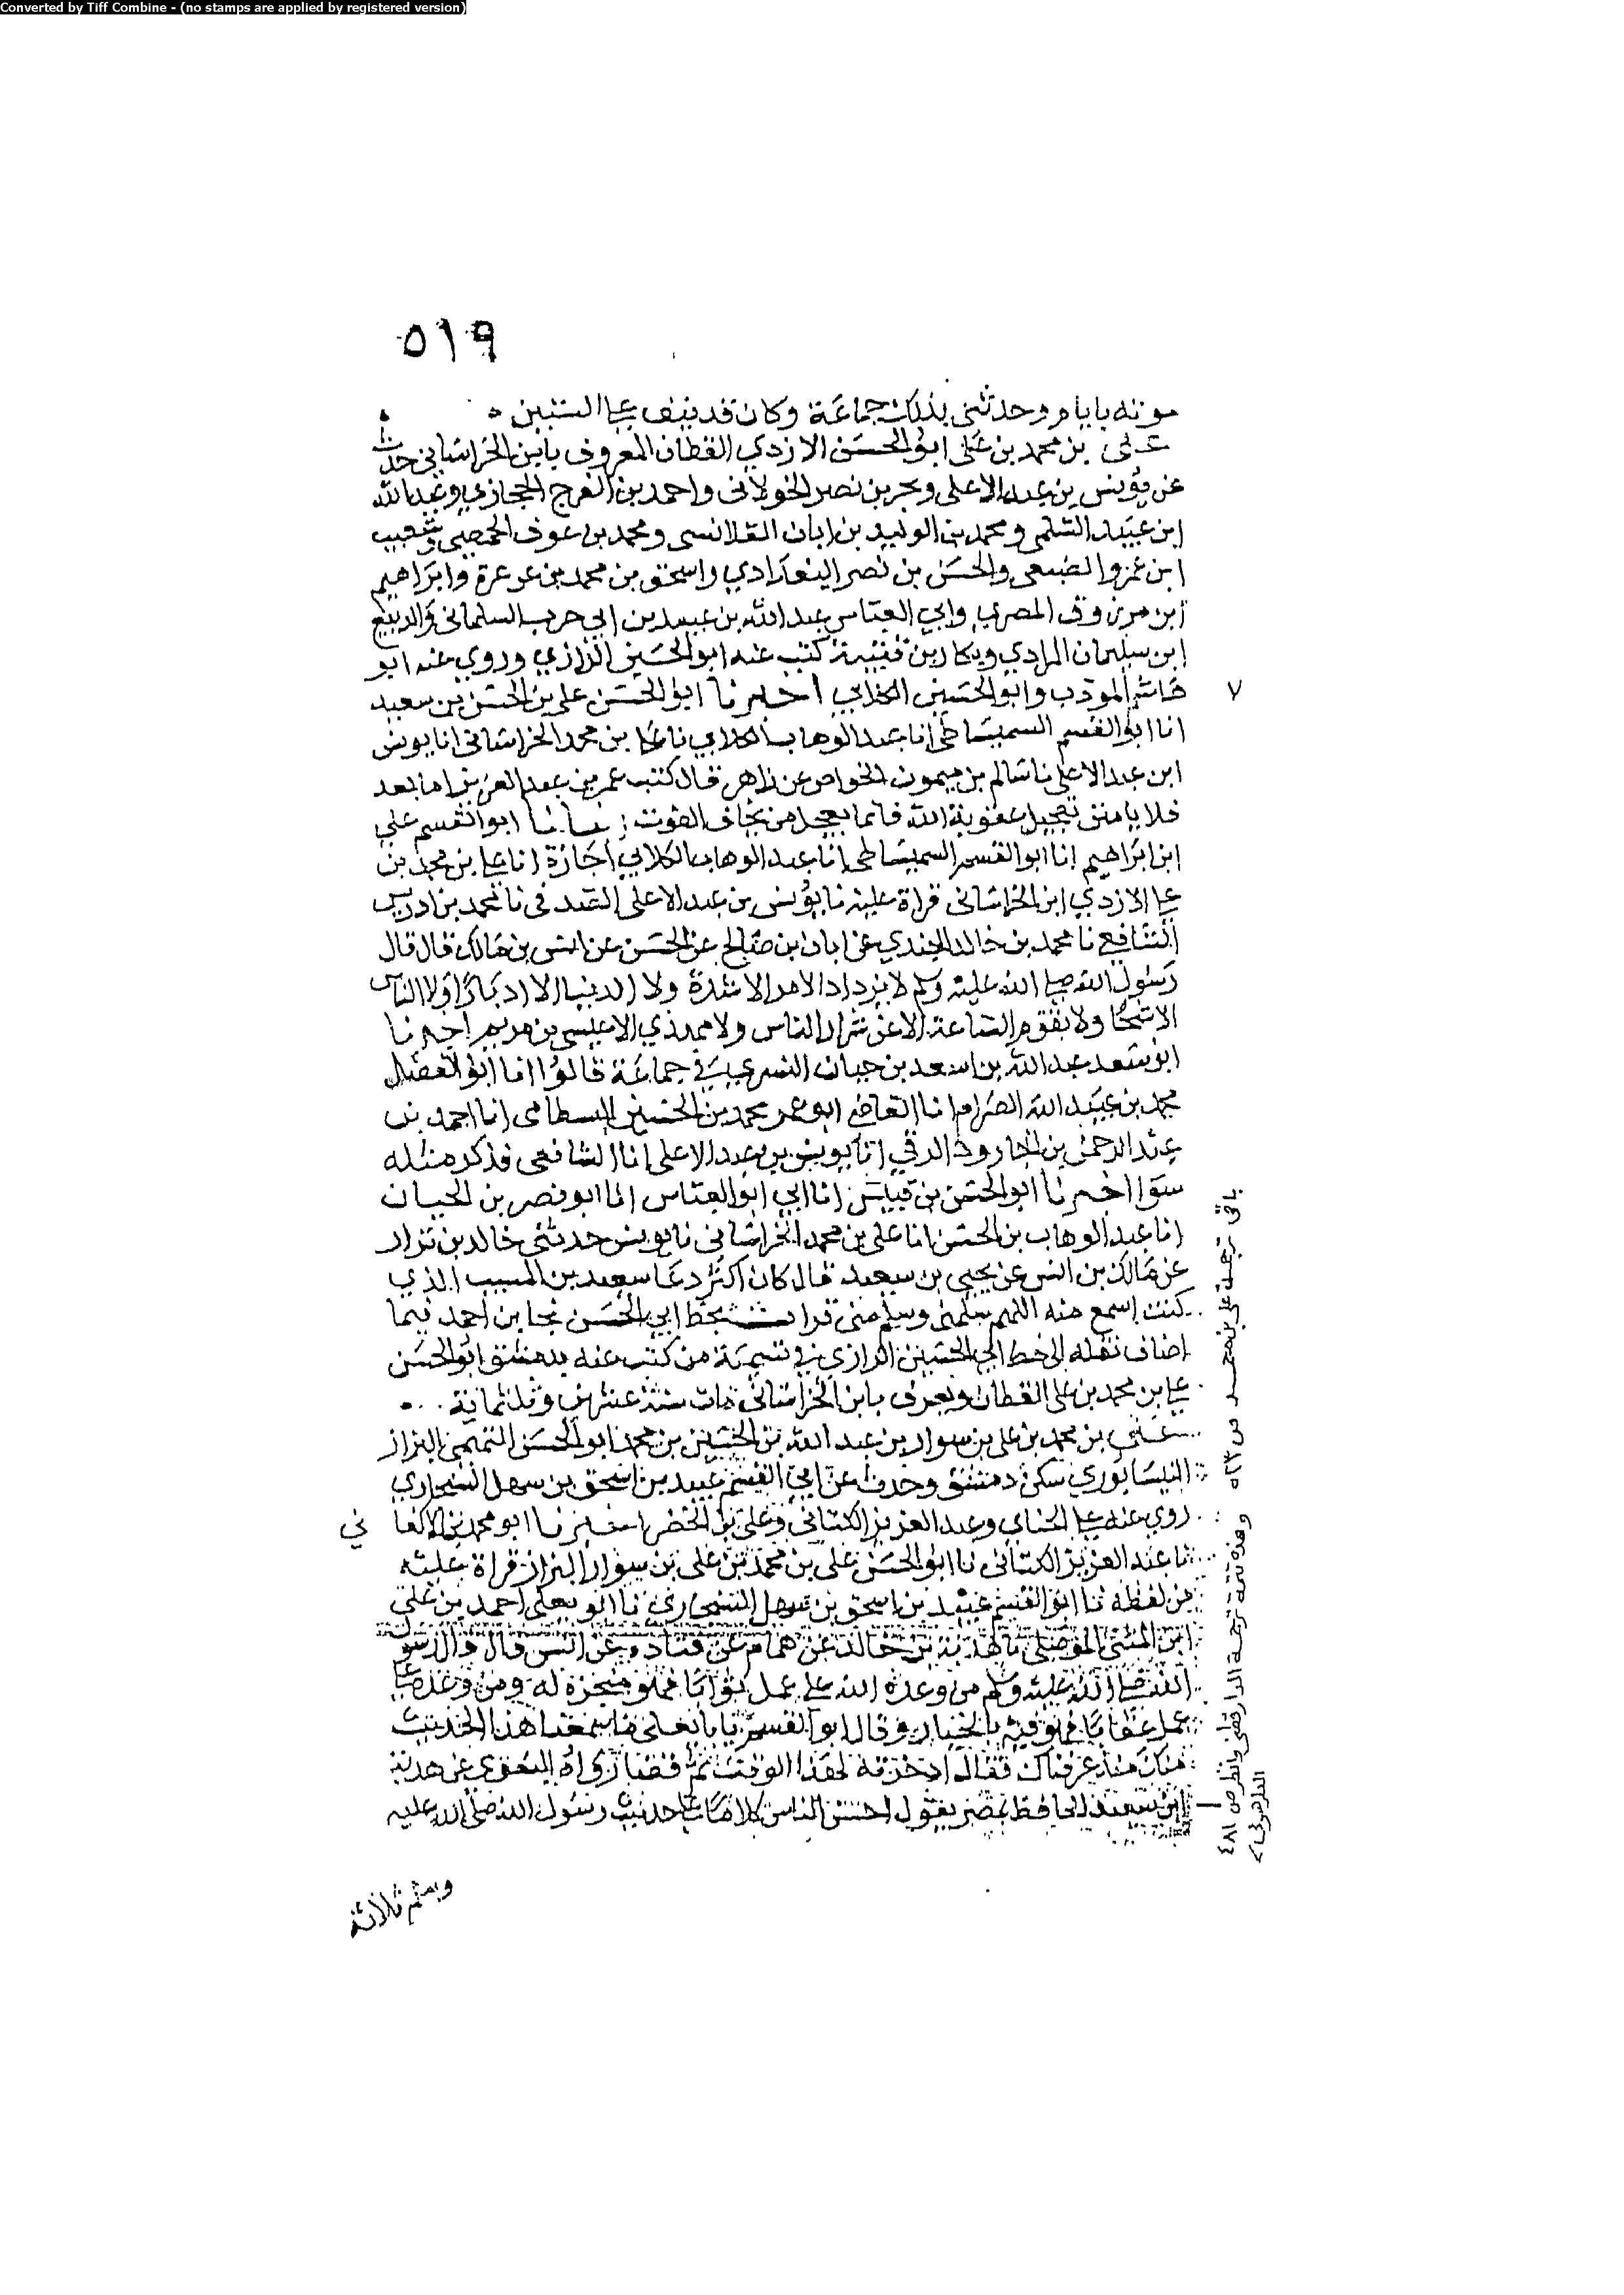 Converted by Tiff Combine - (no stamps are applied by registered version)
٥١٩
موته بايام وحدثني بذلك جماعة وكان قد نيف على الستين
علي بن محمد بن علي ابو الحسن الازدي القطان المعروف بابن الخراساني حدث
عن يونس بن عبد الاعلى وبحر بن نصر الخولاني واحمد بن الفرج الحجازي وعبد الله
ابن عبيد السلمي ومحمد بن الوليد بن ابان القلانسي ومحمد بن عوف الحمصي وشعيب
ابن عمرو الضبعي والحسن بن نصر البغدادي واسحق بن محمد بن عرعرة وابراهيم
ابن مرزوق المصري وابي العباس عبد الله بن عبيد بن ابي حرب السلماني والربيع
ابن سليمان المرادي وبكار بن قتيبة كتب عنه ابو الحسين الرازي وروي عنه ابو
هاشم المودب وابو الحسين الكلابي اخبرنا ابو الحسن علي بن الحسن بن سعيد
٧
انا ابو القسم السميساطي انا عبد الوهاب الكلابي نا علي بن محمد الخراساني انا يونس
ابن عبد الاعلى نا سالم بن ميمون الخواص عن زاهر قال كتب عمر بن عبد العزيز اما بعد
فلا يامنن تعجيل عقوبة الله فانما يعجل من يخاف الفوت انبانا ابو القسم علي
ابن ابراهيم انا ابو القسم السميساطي انا عبد الوهاب الكلابي اجازة انا علي بن محمد بن
علي الازدي ابن الخراساني قراة عليه نا يونس بن عبد الاعلى الصدفي نا محمد بن ادريس
الشافعي نا محمد بن خالد الجندي عن ابان بن صالح عن الحسن عن انس بن مالك قال قال
رسول الله صلى الله عليه وسلم لا يزداد الامر الا شدة ولا الدنيا الا ادبارا ولا الناس
الا شحا ولا تقوم الساعة الا على شرار الناس ولا مهدي الا عيسى بن مريم اخبرنا
ابو سعد عبد الله بن اسعد بن حيان النسوي في جماعة قالوا انا ابو الفضل
محمد بن عبيد الله الصرام انا القاضي ابو عمر محمد بن الحسين البسطامي انا احمد بن
عبد الرحمن بن الجارود الرقي انا يونس بن عبد الاعلى انا الشافعي فذكر مثله
سوا اخبرنا ابو الحسن بن قبيس انا ابي ابو العباس انا ابو نصر بن الجبان
انا عبد الوهاب بن الحسن انا علي بن محمد الخراساني نا يونس حدثني خالد بن نزار
عن مالك بن انس عن يحيى بن سعيد قال كان اكثر دعا سعيد بن المسيب الذي
كنت اسمع منه اللهم سلمني وسلم مني قرات بخط ابي الحسن نجا بن احمد فيما
اضاف نقله الى خط ابي الحسين الرازي في تسمية من كتب عنه بدمشق ابو الحسن
علي بن محمد بن علي القطان ويعرف بابن الخراساني مات سنة عشرين وثلثماية
علي بن محمد بن علي بن سوار بن عبد الله بن الحسين بن محمد ابو الحسن التميمي البزاز
النيسابوري سكن دمشق وحدث عن ابي القسم عبيد بن اسحق بن سهل السنجاري
روي عنه علي الحناي وعبد العزيز الكتاني وعلي بن الخضر اخبرنا ابو محمد بن الاكفا ني
نا عبد العزيز الكتاني نا ابو الحسن علي بن محمد بن علي بن سوار البزاز قراة عليه
من لفظه نا ابو القسم عبيد بن اسحق بن سهل السنجاري نا ابو يعلى احمد بن علي
ابن المثنى الموصلي نا هدبة بن خالد عن همام عن قتادة عن انس قال قال رسول
الله صلى الله عليه وسلم من وعده الله على عمل ثوابا فهو منجزه له ومن وعده على
عمل عقابا فهو فيه بالخيار وقال ابو القسم يابا يعلى ما سمعنا هذا الحديث
منك منذ عرفناك فقال ادخرته لهذا الوقت
ابن سعيد الحافظ بمصر يقول احسن الناس كلاما على حديث رسول الله صلى الله عليه
وبسلم ثلاثة
باقي ترجمة علي بن محمد ص ٥٢٣
وهذه تتمة ترجمة الدارقطني وانظر ص ٤٨١